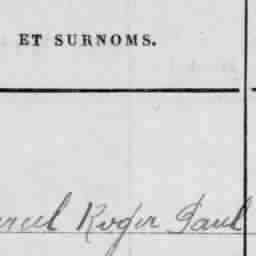 ET SURNOMS.
Roger Paul